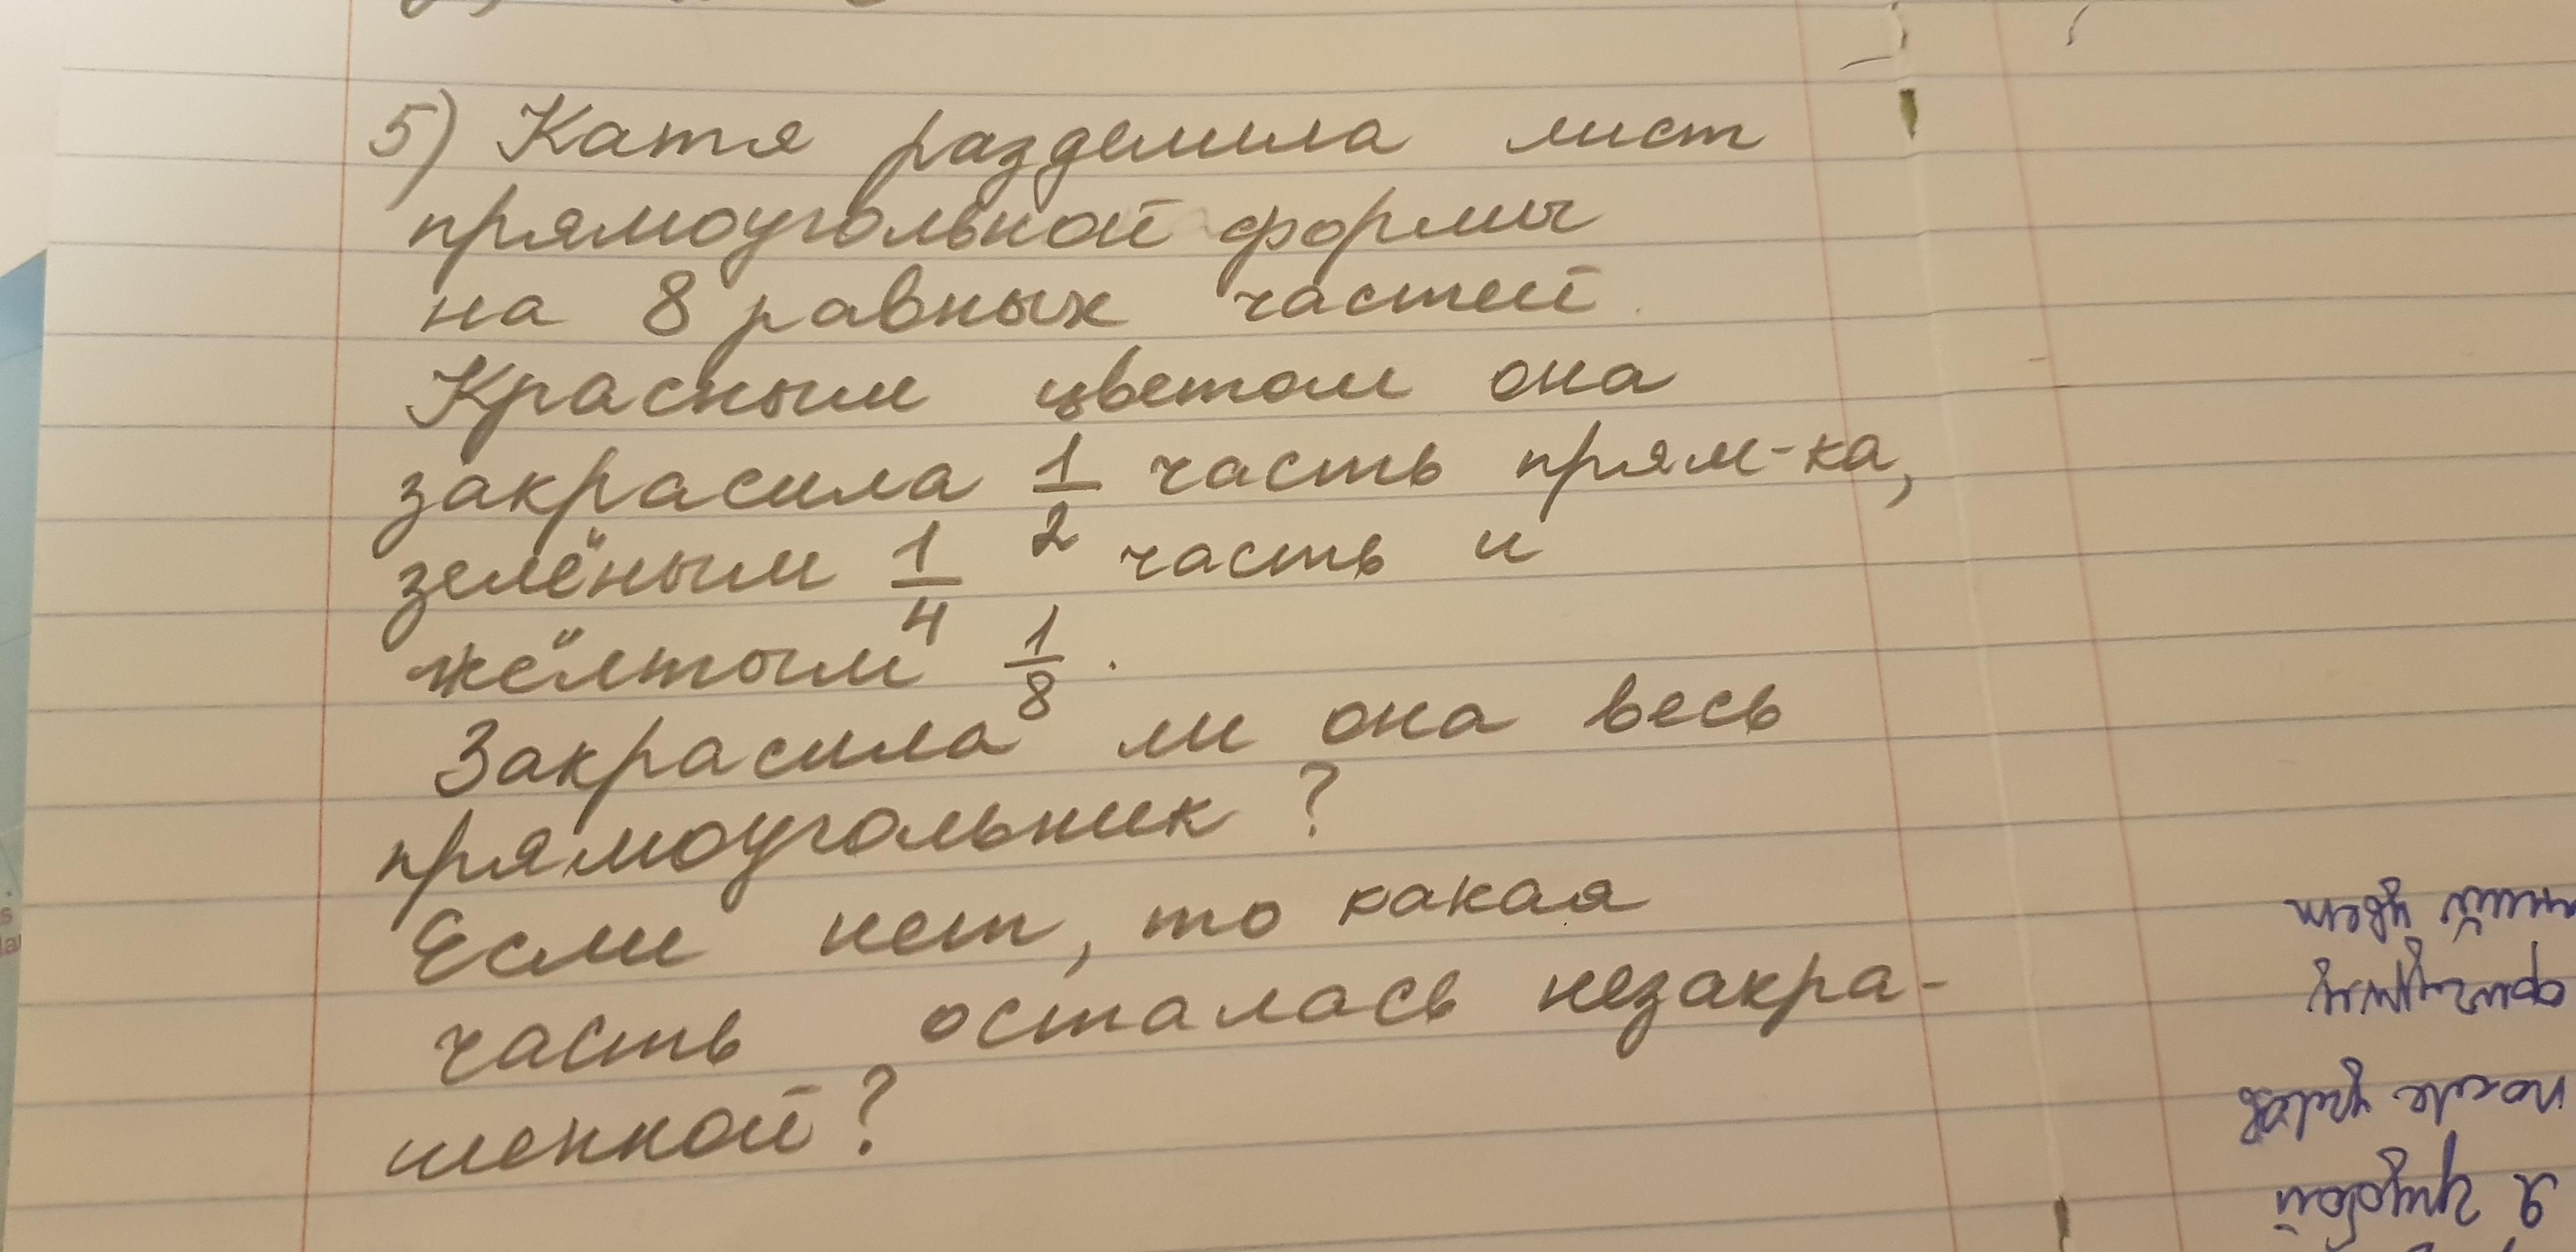 5) Катя разделила лист
прямоугольной формы
на 8 равных частей.
Красным цветом она
закрасила 1/2 часть прям-ка,
зелёным 1/4 часть и
жёлтым 1/8.
Закрасила ли она весь
прямоугольник?
Если нет, то какая
часть осталась незакра-
шенной?